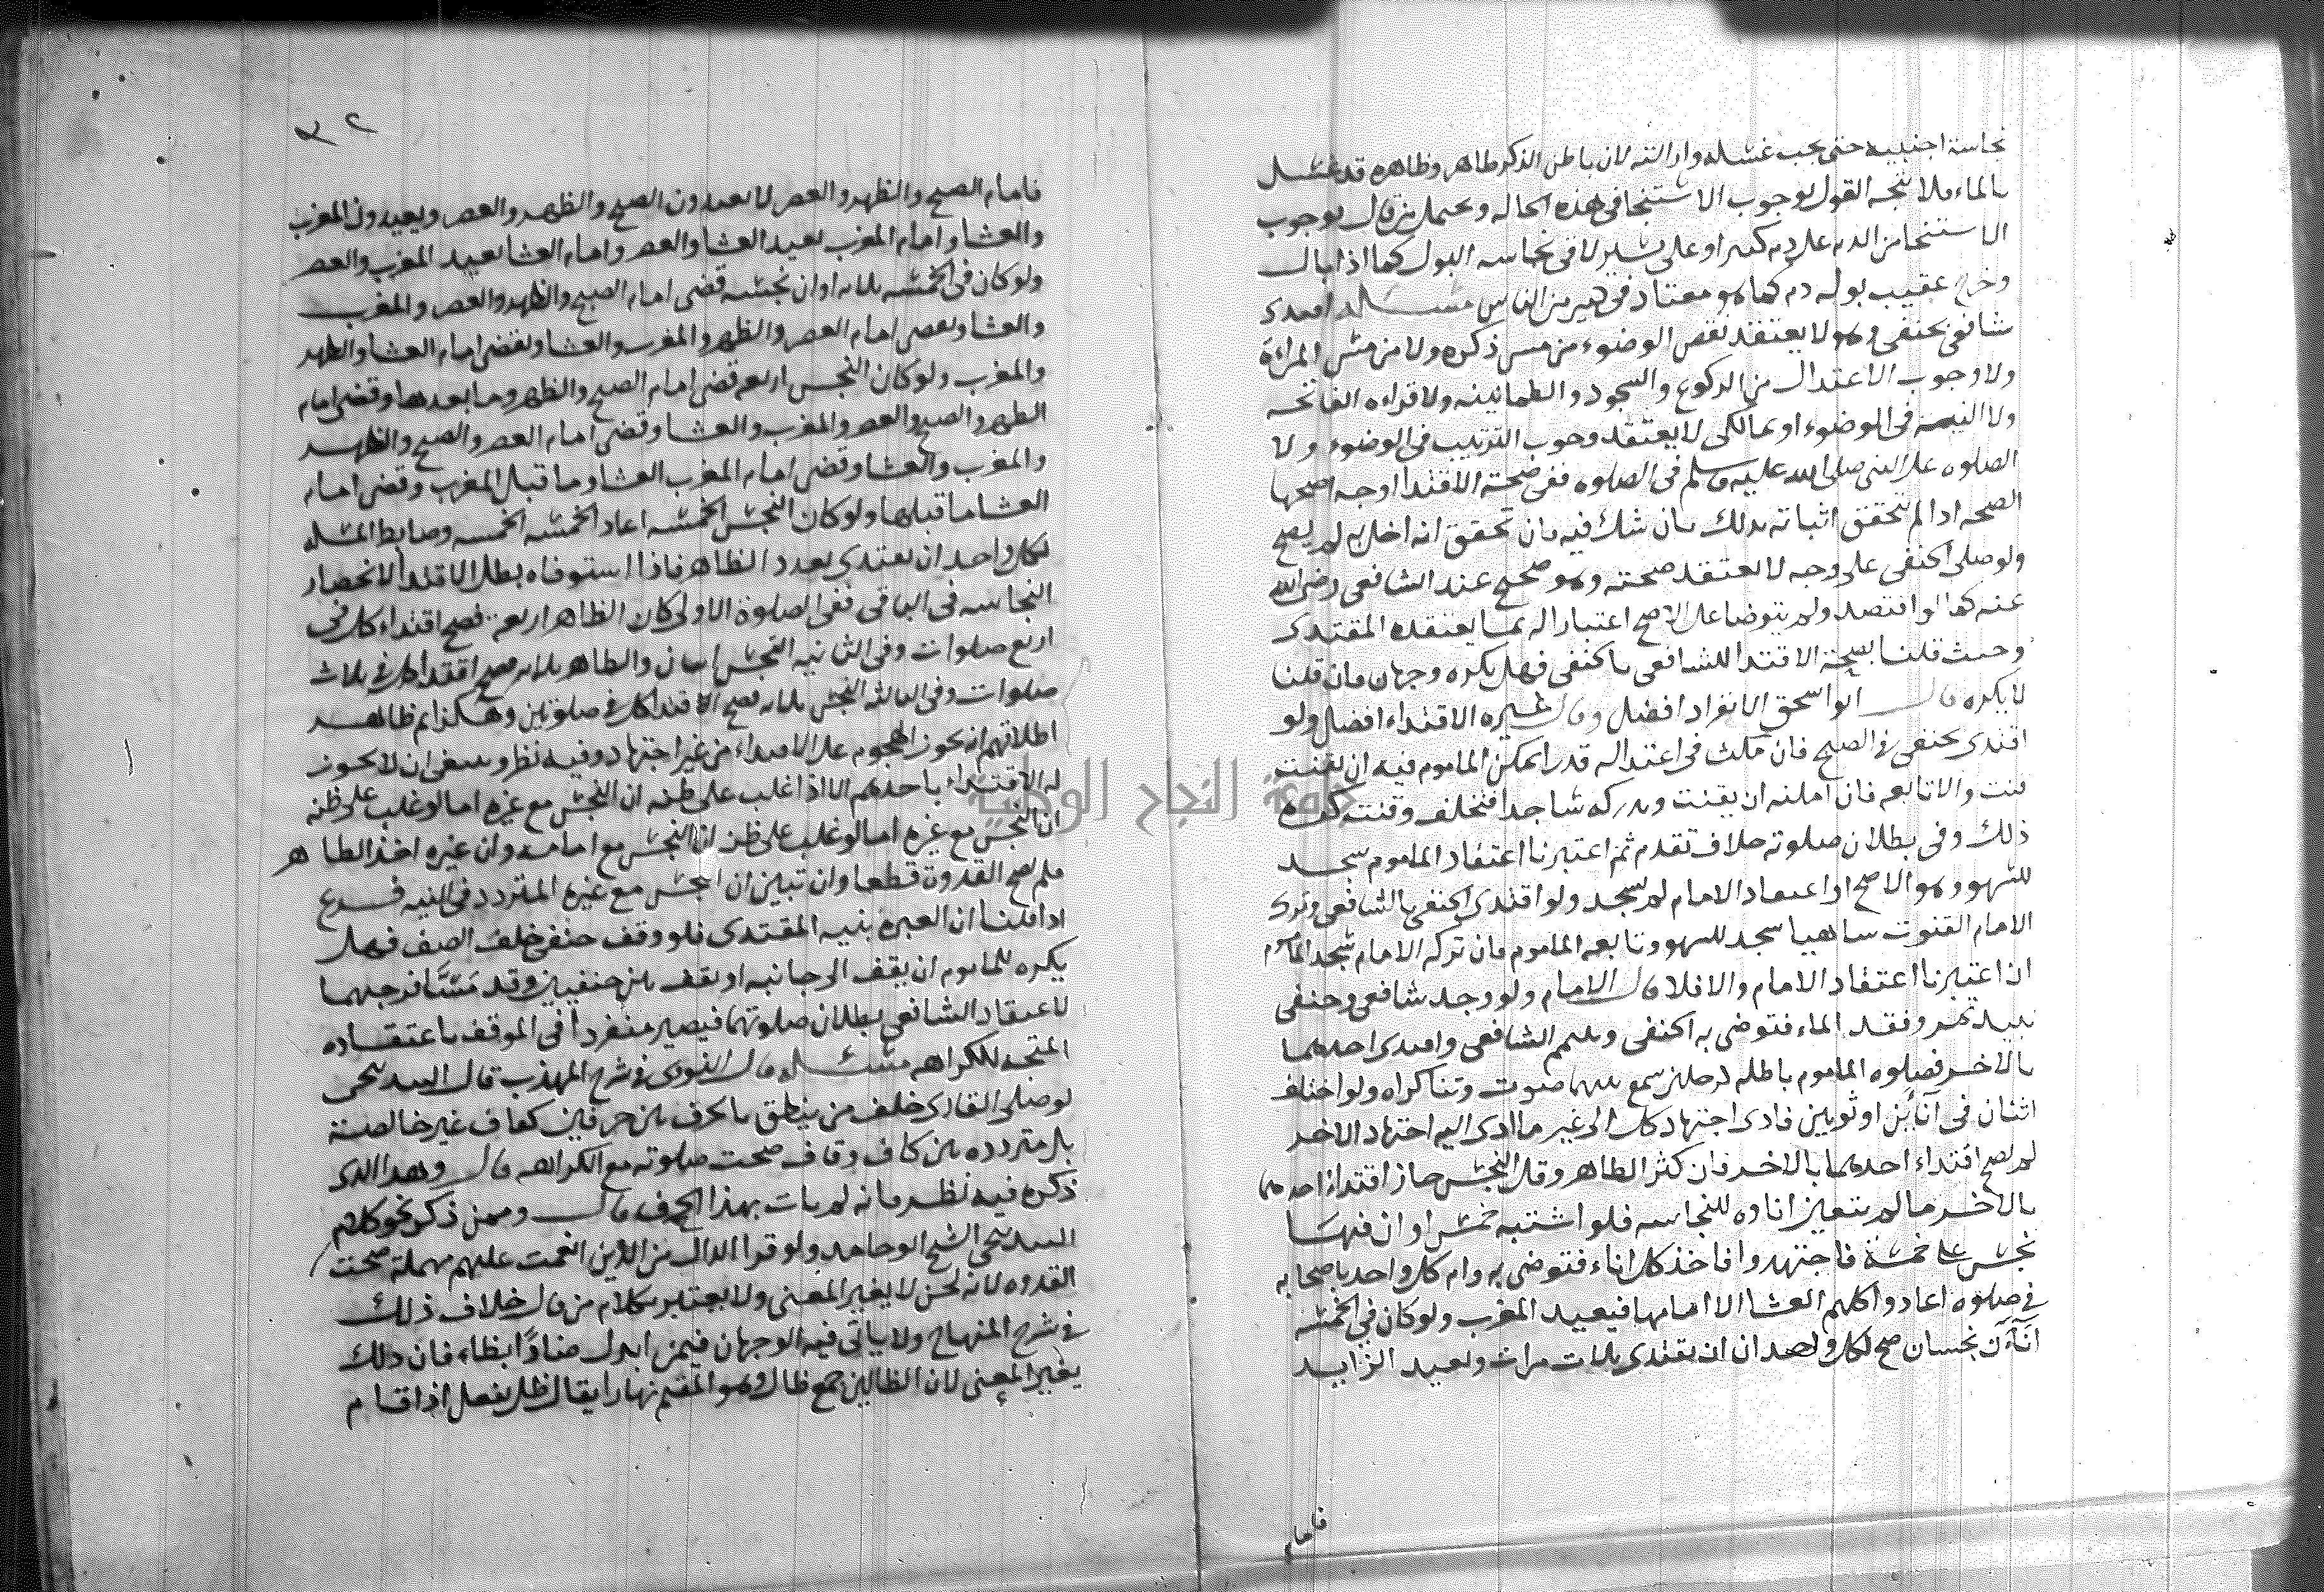 نجاسة اجنبيه حتى يجب غسله وازالته لان باطن الذكر طاهر وظاهره قد غسل
بالماء فلا يتجه القول بوجوب الاستنجا فى هذه الحاله ويحمل من قال بوجوب
الاستنجا من الدم على دم كثير او على يسير لاقى نجاسه البول كما اذا بال
وخرج عقيب بوله دم كما هو معتاد فى كثير من الناس مسئلة اقتدى
شافعى بحنفى وهو لا يعتقد نقض الوضوء من مس ذكره ولا من مس المراة
ولا وجوب الاعتدال من الركوع والسجود والطمانينه ولا قراه الفاتحه
ولا النيه فى الوضوء او بمالكى لا يعتقد وجوب الترتيب فى الوضوء ولا
الصلوه على النبى صلى الله عليه وسلم فى الصلوه ففى صحة الاقتدا اوجه اصحها
الصحه اذا لم يتحقق اثباته بذلك بان شك فيه فان تحقق انه اخل به لم يصح
ولو صلى الحنفى على وجه لا يعتقد صحته وهو صحيح عند الشافعى رضى الله
عنه كما لو افتصد ولم يتوضا على الاصح اعتبارا له بما يعتقده المقتدى
وحيث قلنا بصحة الاقتدا للشافعى بالحنفى فهل يكره وجهان فان قلنا
لا يكره قال ابو اسحق الانفراد افضل وقال غيره الاقتداء افضل ولو
اقتدى بحنفى فى الصبح فان مكث فى اعتداله قدرا يمكن الماموم فيه ان يقنت
قنت والا تابعه فان امكنه ان يقنت ويدركه ساجدا فتخلف وقنت كره
ذلك وفى بطلان صلوته خلاف تقدم ثم اعتبرنا اعتقاد الماموم سجد
للسهو وهو الاصح او اعتقاد الامام لم يسجد ولو اقتدى الحنفى بالشافعى وترك
الامام القنوت ساهيا سجد للسهو وتابعه الماموم فان تركه الامام سجد الماموم
ان اعتبرنا اعتقاد الامام والا فلا قال الامام ولو وجد شافعى وحنفى
نبيذ تمر وفقد الماء فتوضى به الحنفى وتيمم الشافعى واقتدى احدهما
بالاخر فصلوه الماموم باطله كرجلين سمع بينهما صوت وتناكراه ولو اختلف
اثنان فى آناين او ثوبين فادى اجتهاد كل الى غير ما ادى اليه اجتهاد الاخر
لم يصح اقتداء احدهما بالاخر فان كثر الطاهر وقل النجس جاز اقتداء احدهما
بالاخر ما لم يتعين اناوه للنجاسه فلو اشتبه خمس اوان فيها
نجس على خمسة فاجتهدوا فاخذ كل اناء فتوضى به وام كل واحد باصحابه
فى صلوه اعادوا كلهم العشا الا امامها فيعيد المغرب ولو كان فى الخمسه
آناآن نجسان صح لكل واحد ان يقتدى بثلاث مرات ويعيد الزايد
فامام
٣٢
فامام الصبح والظهر والعصر لا يعيدون الصبح والظهر والعصر ويعيدون المغرب
والعشا وامام المغرب يعيد العشا والعصر وامام العشا يعيد المغرب والعصر
ولو كان فى الخمسه ثلاثه اوان نجسه قضى امام الصبح والظهر والعصر والمغرب
والعشا ويقضى امام العصر والظهر والمغرب والعشا ويقضى امام العشا والظهر
والمغرب ولو كان النجس اربعه قضى امام الصبح والظهر وما بعدها وقضى امام
الظهر والصبح والعصر والمغرب والعشا وقضى امام العصر والصبح والظهر
والمغرب والعشا وقضى امام المغرب العشا وما قبل المغرب وقضى امام
العشا ما قبلها ولو كان النجس الخمسه اعاد الخمسه الخمسه وضابط المسله
لكل واحد ان يقتدى بعدد الظاهر فاذا استوفاه بطل الاقتدا لانحصار
النجاسه فى الباقى ففى الصلوة الاولى كان الطاهر اربعه فصح اقتداء كل فى
اربع صلوات وفى الثانيه النجس اثنان والطاهر ثلاثه فصح اقتدا كل فى ثلاث
صلوات وفى الثالثه النجس ثلاثه فصح الاقتدا كل فى صلوتين وهكذا ثم ظاهر
اطلاقهم انه يجوز الهجوم على الاقتداء من غير اجتهاد وفيه نظر وينبغى ان لا يجوز
له الاقتداء باحدهم الا اذا غلب على ظنه ان النجس مع غيره اما لو غلب على ظنه
ان النجس مع غيره اما لو غلب على ظنه ان النجس مع امامه وان غيره اخذ الطاهر
فلم تصح القدوة قطعا وان تبين ان النجس مع غيره المتردد فى النيه فرع
اذا قلنا ان العبرة بنيه المقتدى فلو وقف حنفى خلف الصف فهل
يكره للماموم ان يقف الى جانبه او يقف بين حنفيين وقد مسا فرجهما
لاعتقاد الشافعى بطلان صلوتهما فيصير منفردا فى الموقف باعتقاده
المتجه للكراهه مسئله قال النووى فى شرح المهذب قال البندنيجى
لو صلى القارى خلف من ينطق بالحرف بين حرفين كقاف غير خالصة
بل متردده بين كاف وقاف صحت صلوته مع الكراهه قال وهذا الذى
ذكره فيه نظر فانه لم يات بهذا الحرف قال وممن ذكر نحو كلام
البندنيجى الشيخ ابو حامد ولو قرا الذال من الذين انعمت عليهم مهملة صحت
القدوه لانه لحن لا يغير المعنى ولا يعتبر بكلام من قال خلاف ذلك
فى شرح المنهاج ولا ياتى فيه الوجهان فيمن ابدل ضادًا بظاء فان ذلك
يغير المعنى لان الظالين جمع ظال وهو المقيم نهارا يقال ظل يفعل اذا قام
جامعة النجاح الوطنية